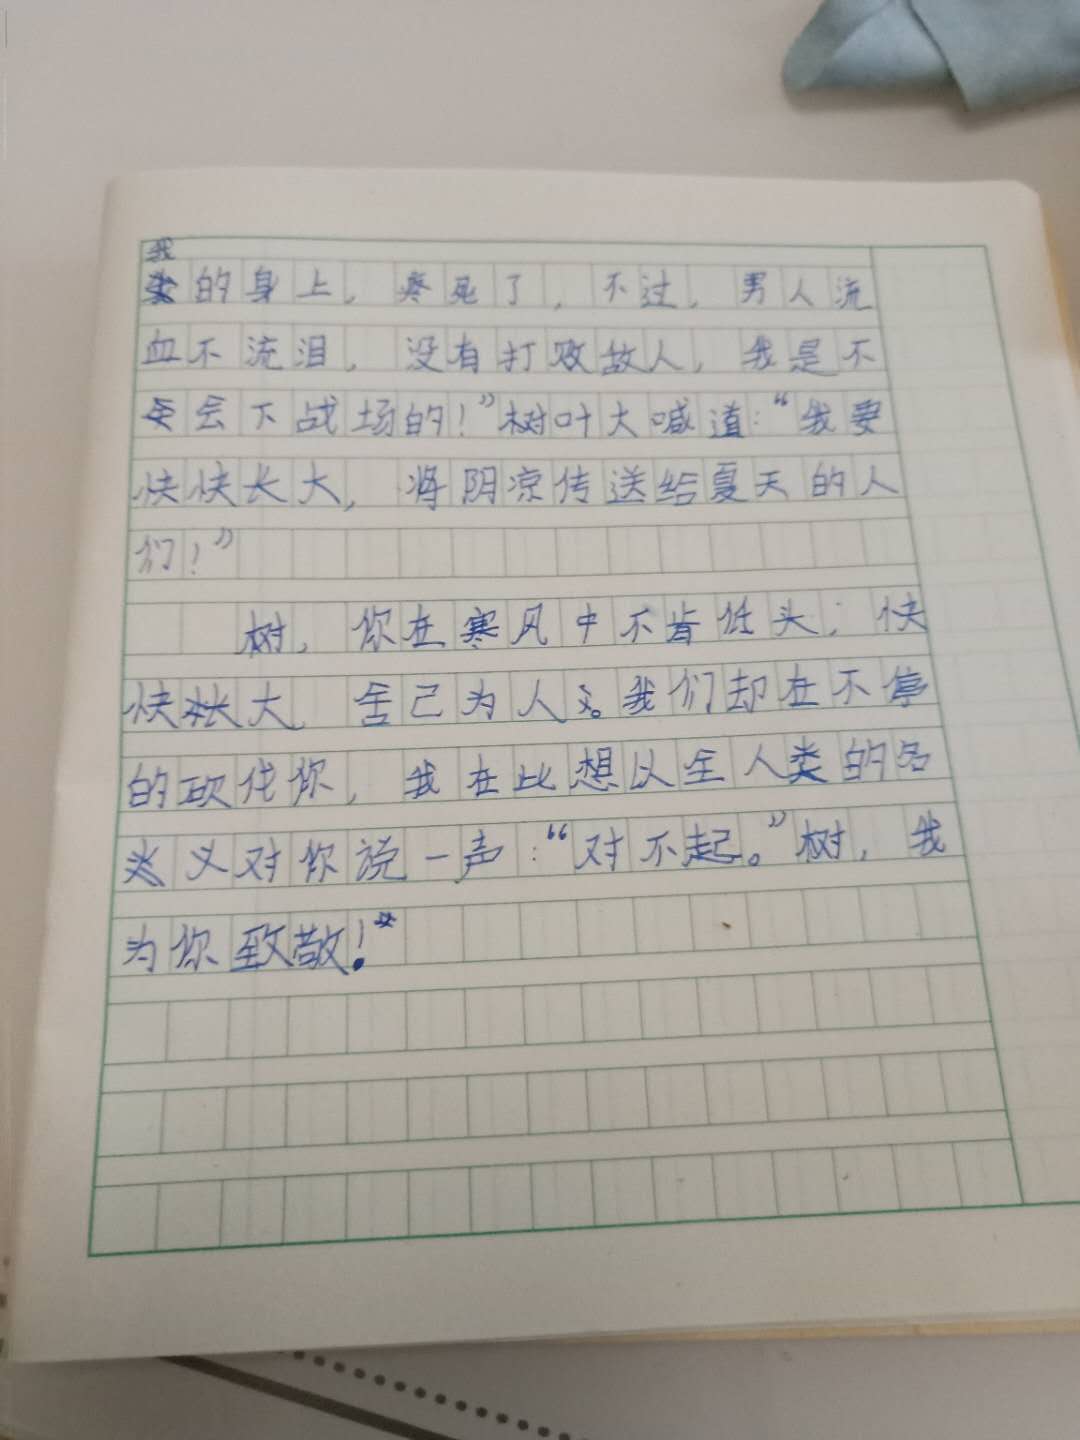 我
的身上，疼死了，不过，男人流
血不流泪，没有打败敌人，我是不
会下战场的！”树叶大喊道：“我要
快快长大，将阴凉传送给夏天的人
们！”
树，你在寒风中不肯低头；快
快长大，舍己为人。我们却在不停
的砍伐你，我在此想以全人类的名
义对你说一声：“对不起。”树，我
为你致敬！